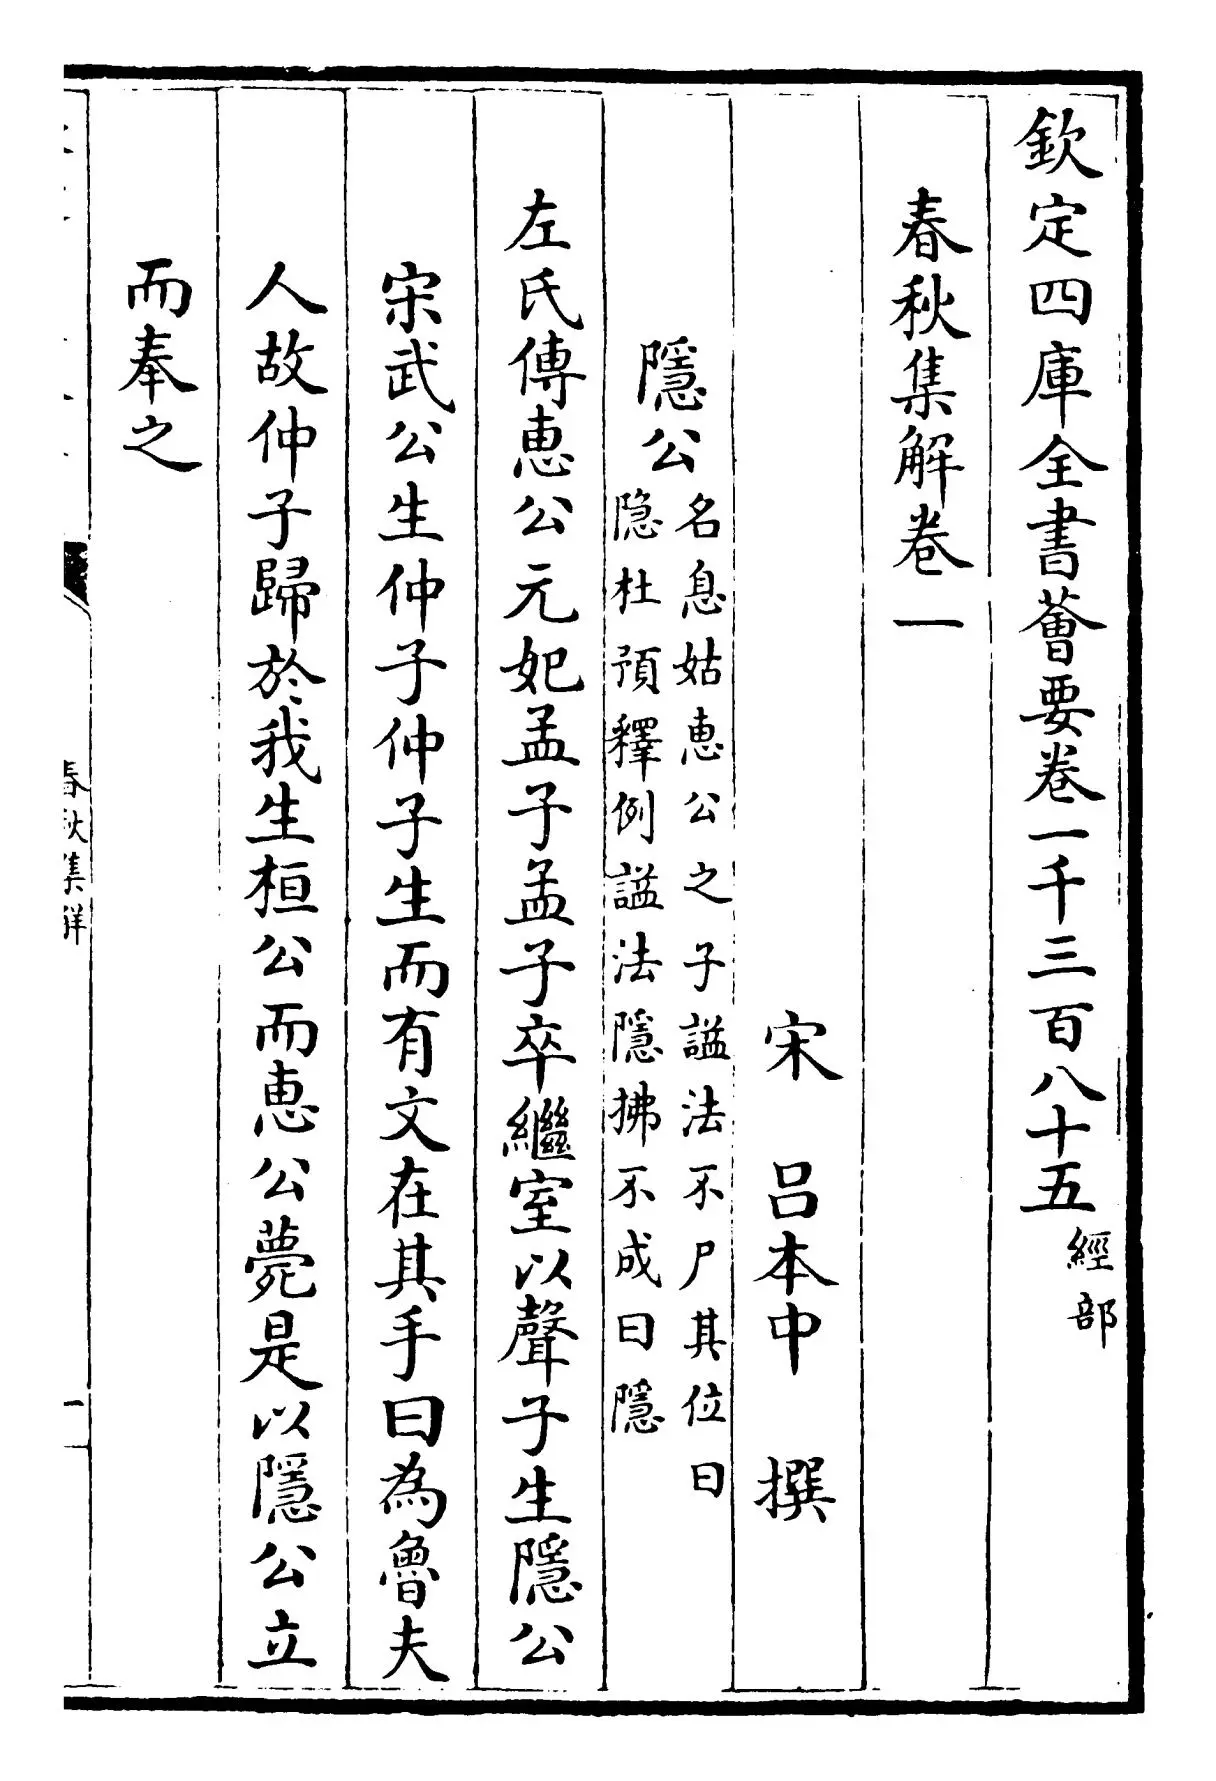 欽定四庫全書薈要卷一千三百八十五經部
春秋集解卷一
宋 呂本中 撰
隱公
名息姑惠公之子謚法不尸其位曰
隐杜預釋例謚法隱拂不成曰隱
左氏傳惠公元妃孟子孟子卒繼室以聲子生隱公
宋武公生仲子仲子生而有文在其手曰為魯夫
人故仲子歸於我生桓公而惠公薨是以隱公立
而奉之
春秋集解
一